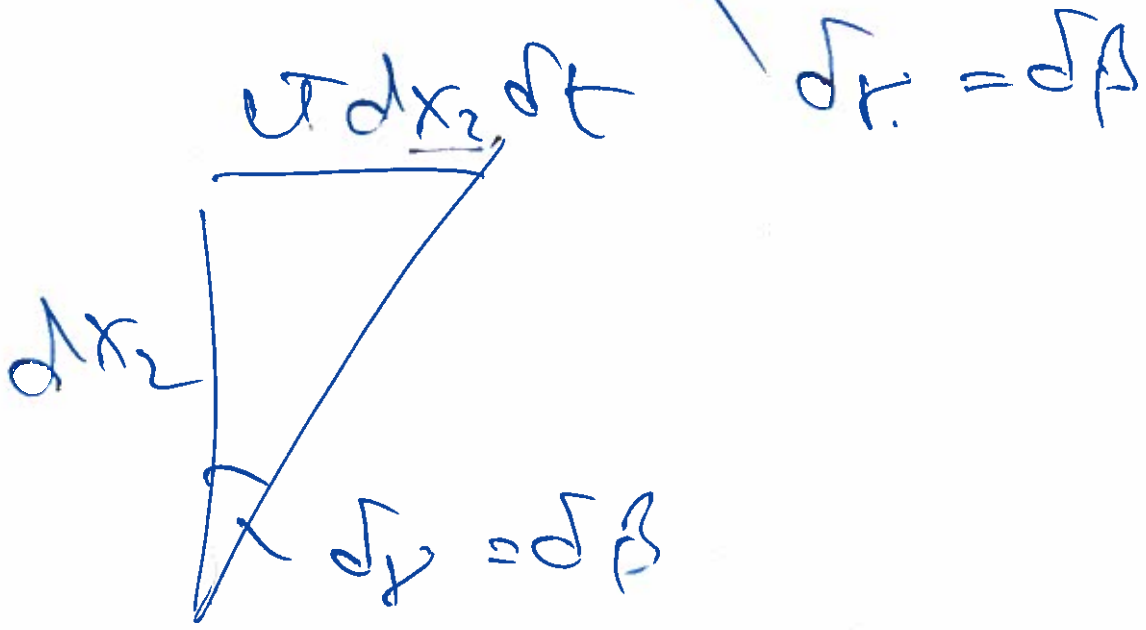 σ dx₂ δt
δγ = δβ
dx₂
δγ = δβ